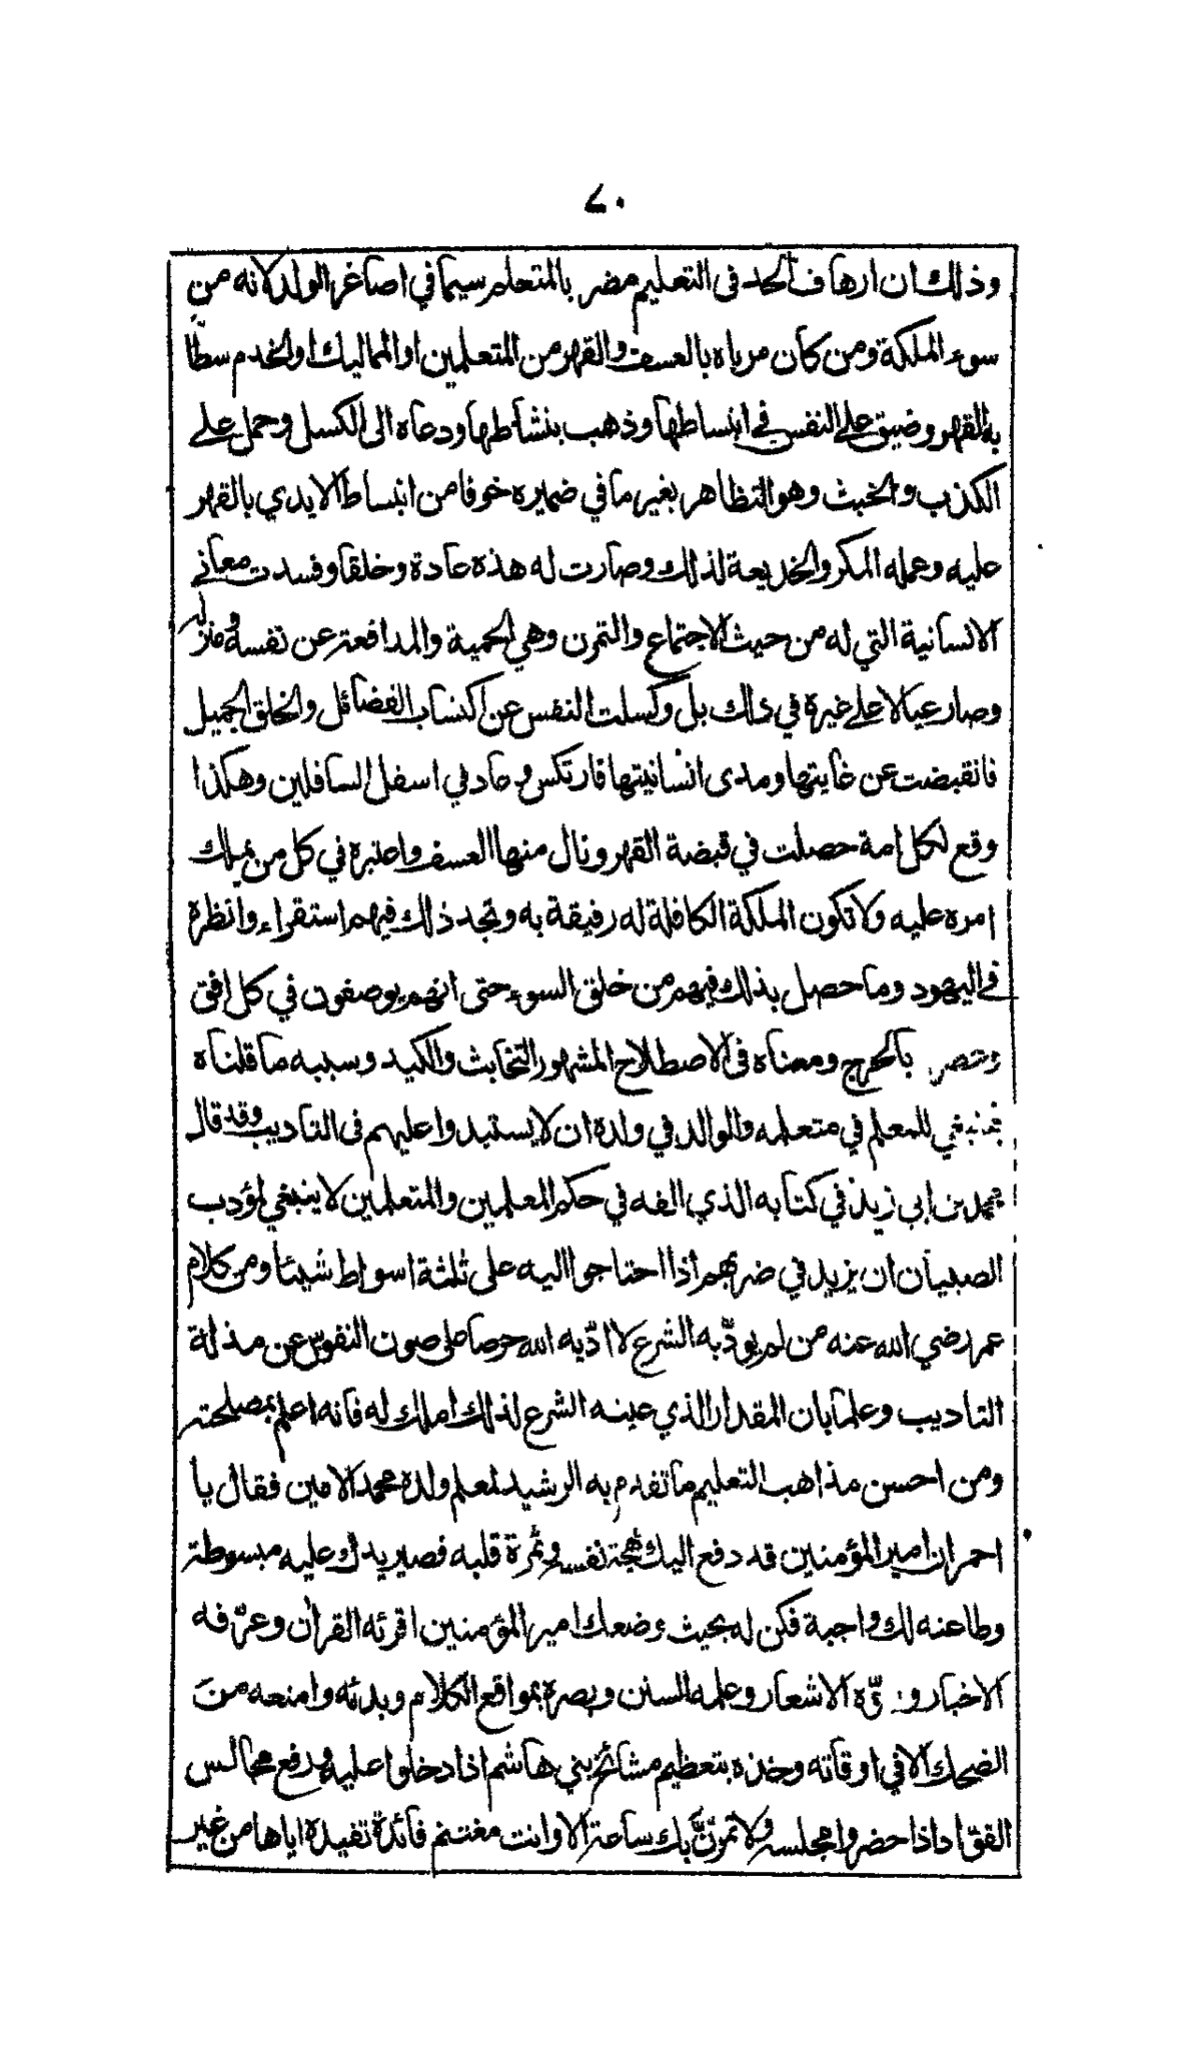 ٧٠
وذلك ان ارهاف الحد فى التعليم مضر بالمتعلم سيما في اصاغر الولد لانه من
سوء الملكة ومن كان مرباه بالعسف والقهر من المتعلمين او المماليك او الخدم سطا
به القهر وضيق على النفس في انبساطها وذهب بنشاطها ودعاه الى الكسل وحمل على
الكذب والخبث وهو التظاهر بغير ما في ضميره خوفا من انبساط الايدي بالقهر
عليه وعمله المكر والخديعة لذلك وصارت له هذه عادة وخلقا وفسدت معاني
الانسانية التي له من حيث الاجتماع والتمرن وهي الحمية والمدافعة عن نفسه ومنزله
وصار عيالا على غيره في ذلك بل وكسلت النفس عن اكتساب الفضائل والخلق الجميل
فانقبضت عن غايتها ومدى انسانيتها فارتكس وعاد في اسفل السافلين وهكذا
وقع لكل امة حصلت في قبضة القهر ونال منها العسف واعتبره في كل من يملك
امره عليه ولا تكون الملكة الكافلة له رفيقة به وتجد ذلك فيهم استقراء وانظره
في اليهود وما حصل بذلك فيهم من خلق السوء حتى انهم يوصفون في كل افق
وعصر بالحرج ومعناه فى الاصطلاح المشهور التخابث والكيد وسببه ما قلناه
فينبغي للمعلم في متعلمه والوالد في ولده ان لا يستبدوا عليهم فى التاديب وقد قال
محمد بن ابى زيد في كتابه الذي الفه في حكم المعلمين والمتعلمين لا ينبغي لمؤدب
الصبيان ان يزيد في ضربهم اذا احتاجوا اليه على ثلثة اسواط شيئا ومن كلام
عمر رضي الله عنه من لم يودّبه الشرع لا ادّبه الله حرصا على صون النفوس عن مذلة
التاديب وعلما بان المقدار الذي عينه الشرع لذلك املك له فانه اعلم بمصلحته
ومن احسن مذاهب التعليم ما تقدم به الرشيد لمعلم ولده محمد الامين فقال يا
احمر ان امير المؤمنين قد دفع اليك مهجة نفسه وثمرة قلبه فصير يدك عليه مبسوطة
وطاعته لك واجبة فكن له بحيث وضعك امير المؤمنين اقرئه القرآن وعرّفه
الاخبار وروّه الاشعار وعلمه السنن وبصره بمواقع الكلام وبدئه وامنعه من
الضحك الا في اوقاته وخذه بتعظيم مشائخ بني هاشم اذا دخلوا عليه ورفع مجالس
القوّاد اذا حضروا مجلسه ولا تمرّنّ بك ساعة الا وانت مغتنم فائدة تفيده اياها من غير